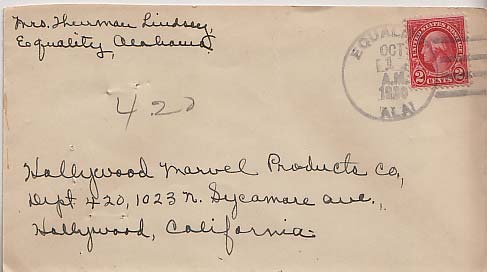 Mrs. Thurman Lindsey,
Equality, Alabama.
EQUAL
OCT
A.M.
1930
ALA
UNITED STATES POSTAGE
2 CENTS 2
420
Hollywood Marvel Products Co,
Dept 420, 1023 N. Sycamore ave.,
Hollywood, California.